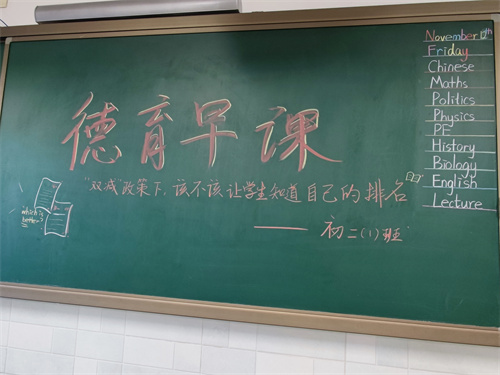 德育早课
"双减"政策下,该不该让学生知道自己的排名
——初二(1)班
which is
better?
November 12th
Friday
Chinese
Maths
Politics
Physics
PE
History
Biology
English
Lecture